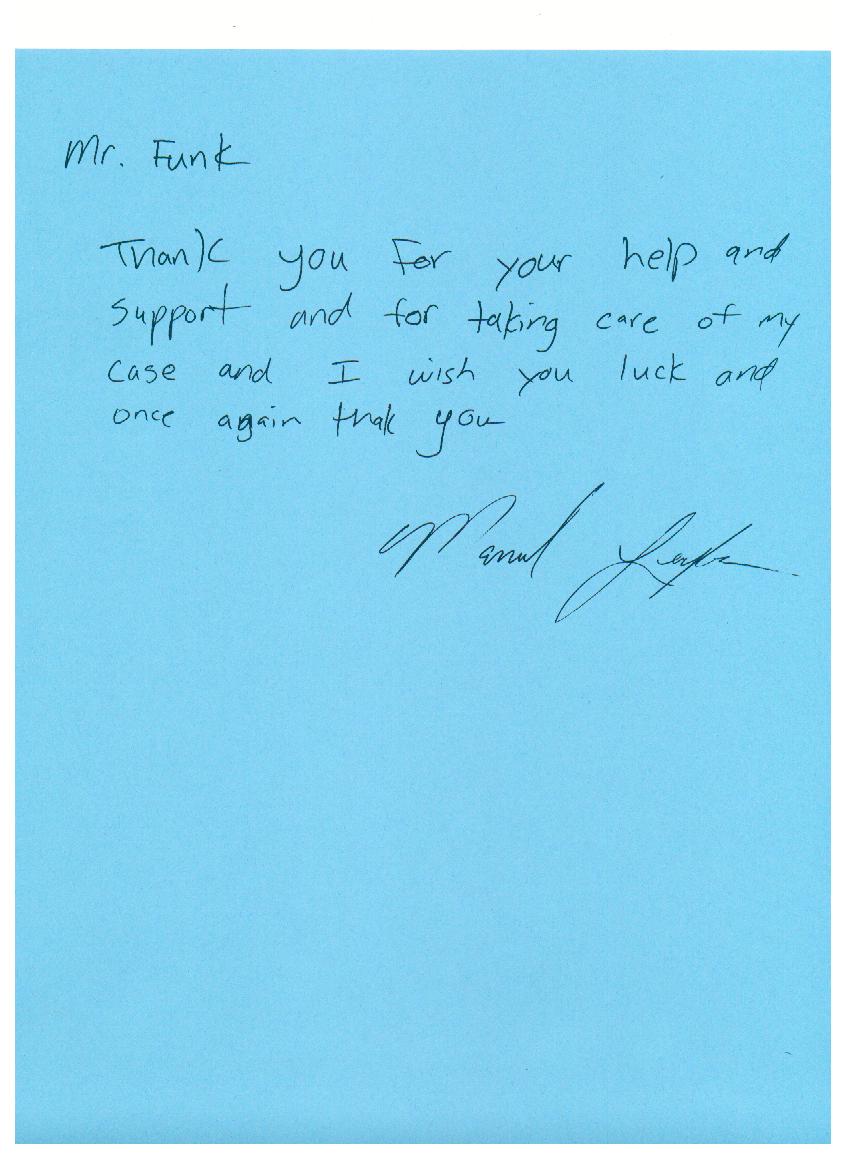 Mr. Funk
Thank you For your help and
support and for taking care of my
case and I wish you luck and
once again thak you